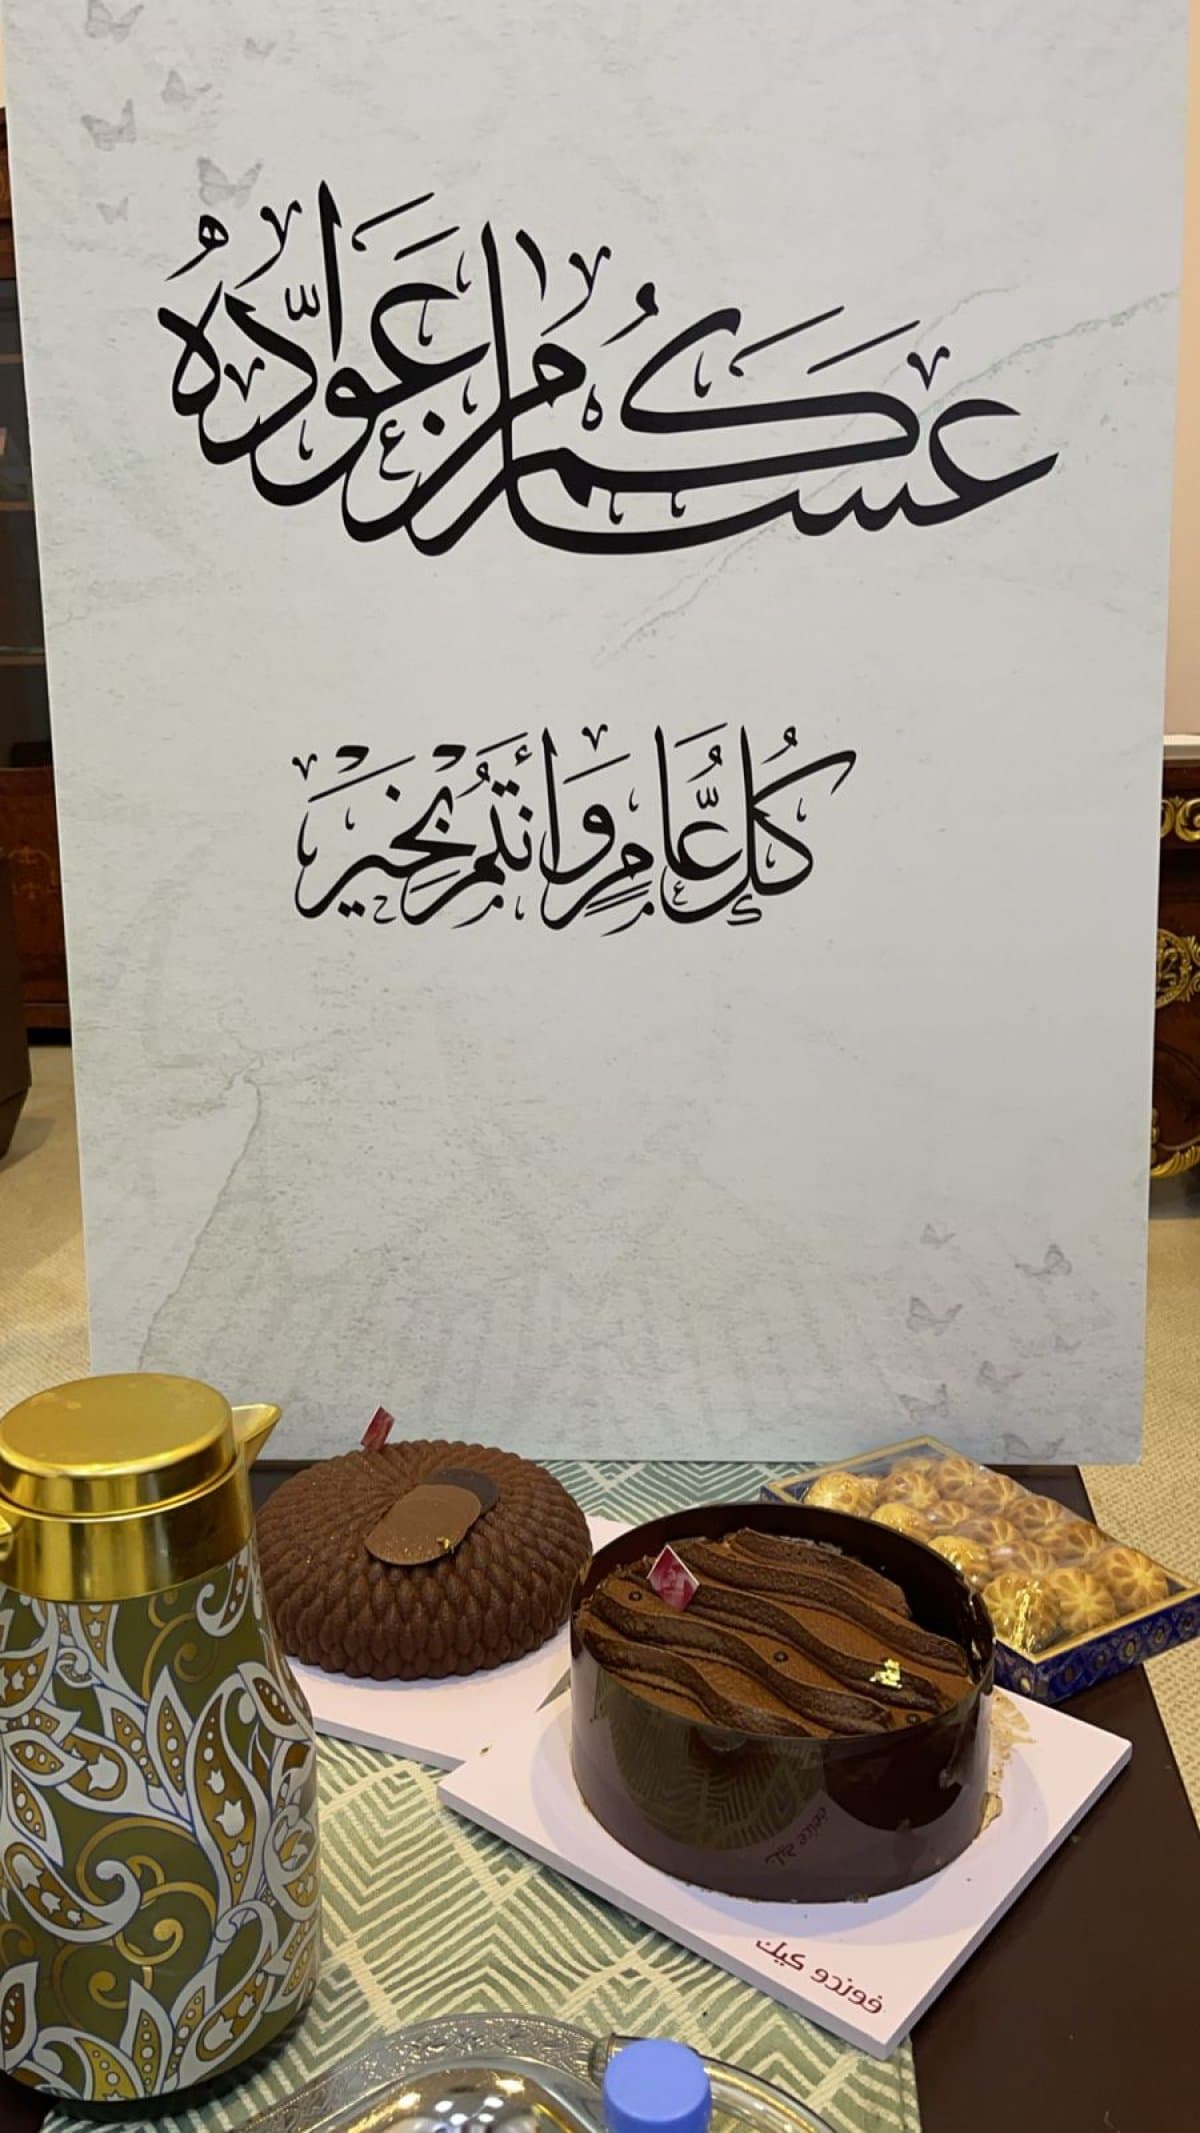 عَسَاكُم مِن عَوَّادُه
كُلُّ عَامٍ وَأَنْتُمْ بِخَيْرٍ
فوندو كيك